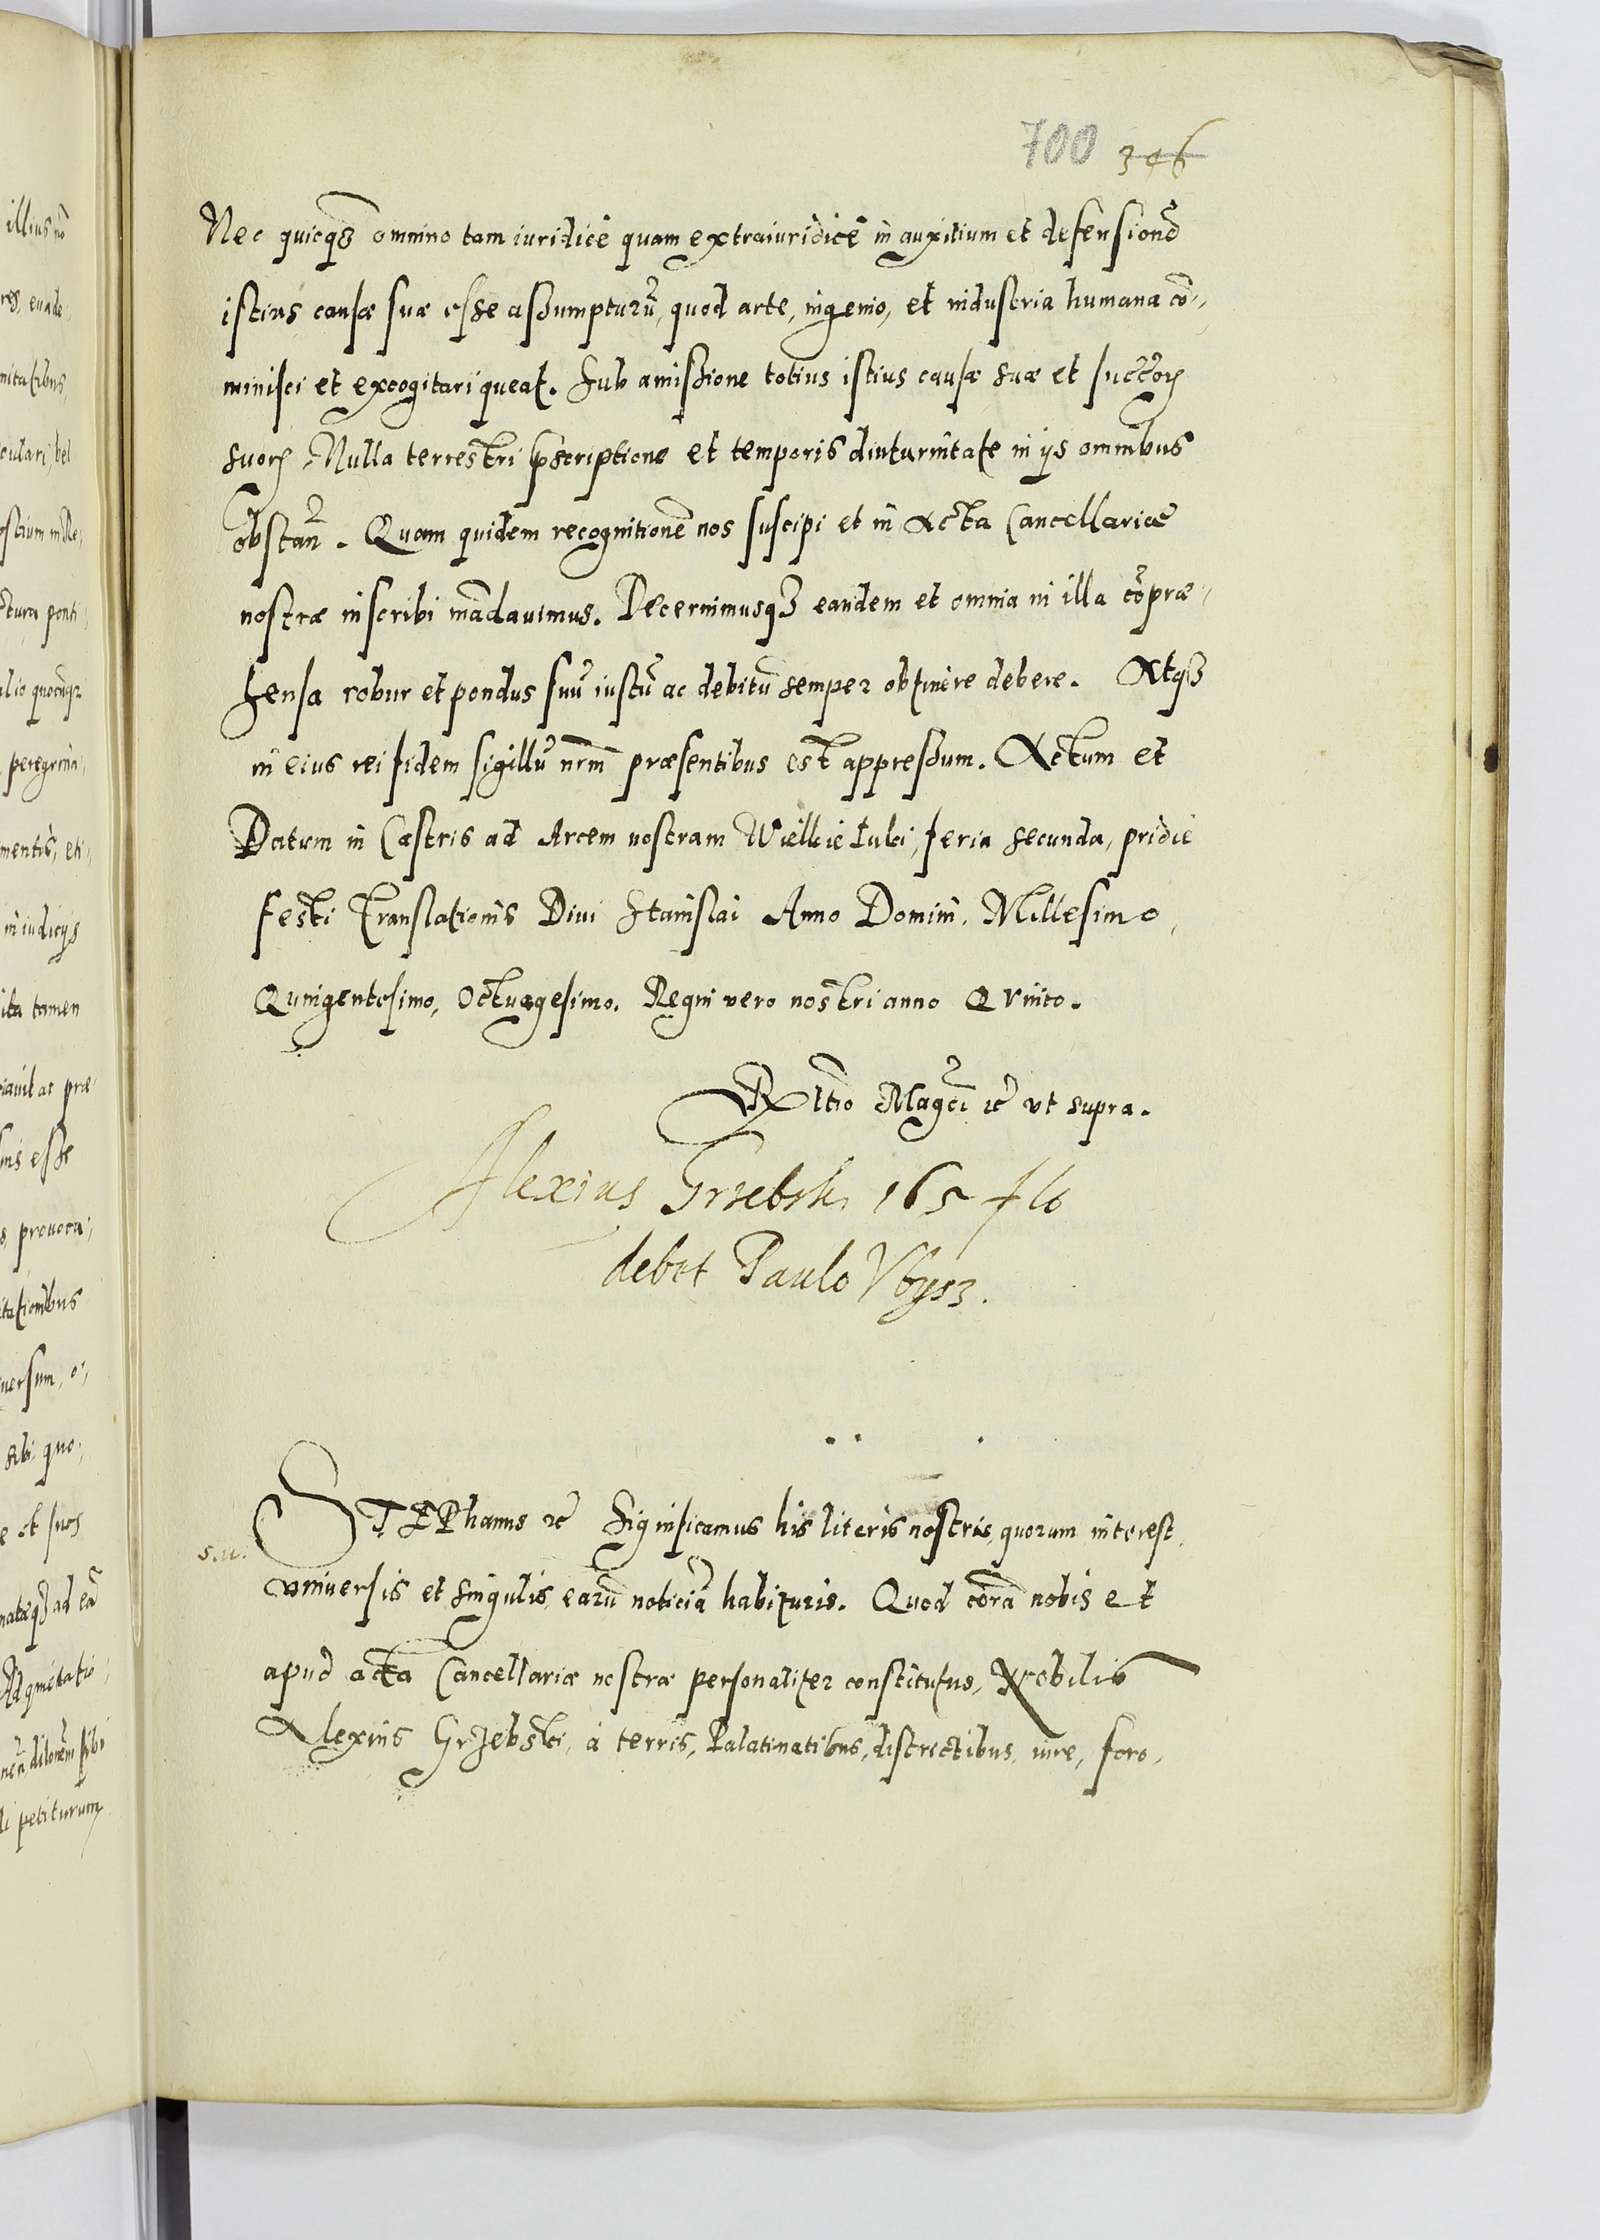 700 346
Nec quicqȝ omnino tam iuridicè quam extraiuridicè in auxilium et defensionē
istius causæ suæ esse assumpturū, quod arte, ingenio, et industria humana cō,,
minisci et excogitari queat. Sub amissione totius istius causæ suæ et succorꝝ
suorꝝ, Nulla terrestri pscriptione et temporis diuturnitate in ijs omnibus
obstan̄. Quam quidem recognitionē nos suscipi et in Acta Cancellariæ
nostræ inscribi mādauimus. Decernimusqȝ eandem et omnia in illa cōpræ,,
hensa robur et pondus suū iustū ac debitū semper obtinere debere. Atqȝ
in eius rei fidem sigillū nrm̄ præsentibus est appressum. Actum et
Datum in Castris ad Arcem nostram Wielkie Łuki, feria secunda, pridie
festi Translationis Diui Stanislai Anno Domini, Millesimo,
Quingentesimo, Octuagesimo. Regni vero nostri anno Quinto.
Rltio Magci ꝛc̄ vt supra.
Alexius Grzebski 165 flo
debet Paulo Vbysz.
s.u.
STEPhanus ꝛc̄ Significamus his literis nostris, quorum interest,
vniuersis et singulis, earū noticiā habituris. Quod corā nobis et
apud acta Cancellariæ nostræ personaliter constitutus, Nobilis
Alexius Grzebski, à terris, Palatinatibus, districtibus, iure, foro,